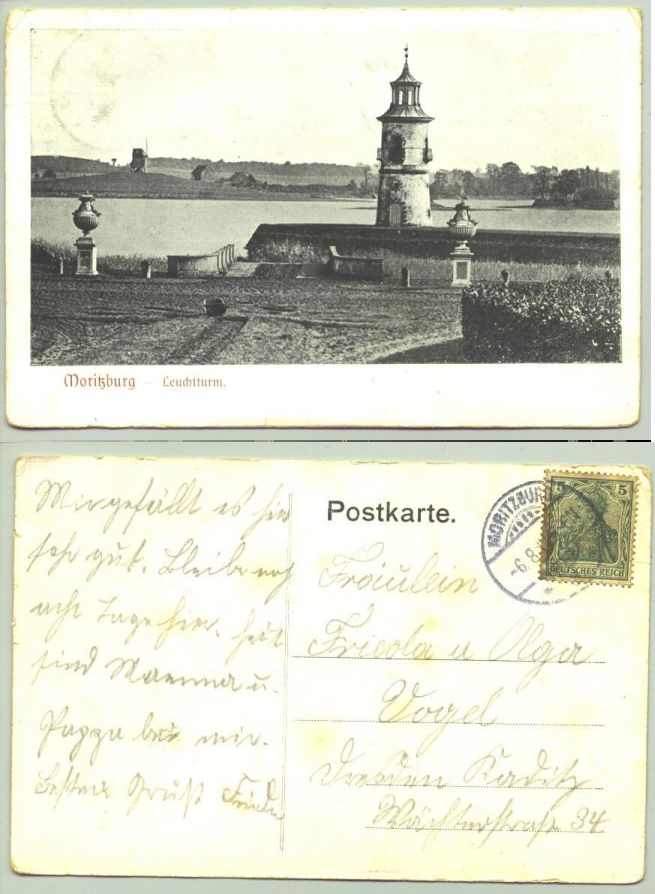 Moritzburg – Leuchtturm.
Postkarte.
MORITZBURG
-6.8.
5 5
DEUTSCHES REICH
Mir gefällt es hier
sehr gut. Bleibe noch
acht Tage hier. heut
sind Mamma u.
Pappa bei mir.
Besten Gruß Frieda
Fräulein
Frieda u Olga
Vogel
Dresden Kaditz
Wächterstraße 34